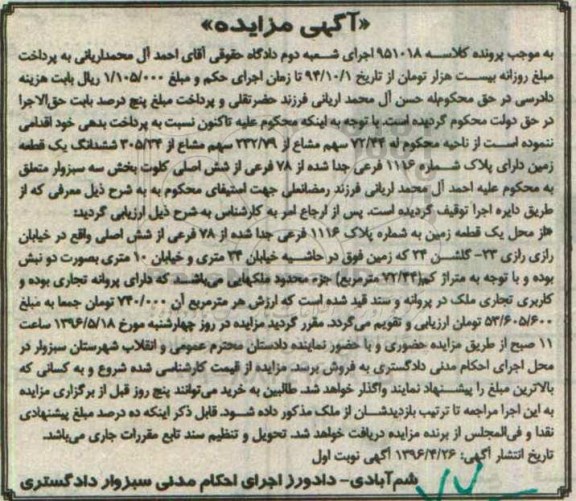 «آگهی مزایده»
به موجب پرونده کلاسه ۹۵۱۰۱۸ اجرای شعبه دوم دادگاه حقوقی آقای احمد آل محمداریانی به پرداخت
مبلغ روزانه بیست هزار تومان از تاریخ ۹۴/۱۰/۱ تا زمان اجرای حکم و مبلغ ۱/۱۰۵/۰۰۰ ریال بابت هزینه
دادرسی در حق محکوم‌له حسن آل محمد اریانی فرزند حضرتقلی و پرداخت مبلغ پنج درصد بابت حق‌الاجرا
در حق دولت محکوم گردیده است. با توجه به اینکه محکوم علیه تاکنون نسبت به پرداخت بدهی خود اقدامی
ننموده است از ناحیه محکوم له ۷۲/۴۴ سهم مشاع از ۲۳۲/۷۹ سهم مشاع از ۳۰۵/۳۴ ششدانگ یک قطعه
زمین دارای پلاک شماره ۱۱۱۶ فرعی جدا شده از ۷۸ فرعی از شش اصلی کلوت بخش سه سبزوار متعلق
به محکوم علیه احمد آل محمد اریانی فرزند رمضانعلی جهت استیفای محکوم به به شرح ذیل معرفی که از
طریق دایره اجرا توقیف گردیده است. پس از ارجاع امر به کارشناس به شرح ذیل ارزیابی گردید:
«از محل یک قطعه زمین به شماره پلاک ۱۱۱۶ فرعی جدا شده از ۷۸ فرعی از شش اصلی واقع در خیابان
رازی رازی ۲۳- گلشن ۲۴ که زمین فوق در حاشیه خیابان ۲۴ متری و خیابان ۱۰ متری بصورت دو نبش
بوده و با توجه به متراژ کم(۷۲/۴۴ مترمربع) جزء محدود ملکهایی می‌باشند که دارای پروانه تجاری بوده و
کاربری تجاری ملک در پروانه و سند قید شده است که ارزش هر مترمربع آن ۷۴۰/۰۰۰ تومان جمعا به مبلغ
۵۳/۶۰۵/۶۰۰ تومان ارزیابی و تقویم می‌گردد. مقرر گردید مزایده در روز چهارشنبه مورخ ۱۳۹۶/۵/۱۸ ساعت
۱۱ صبح از طریق مزایده حضوری و با حضور نماینده دادستان محترم عمومی و انقلاب شهرستان سبزوار در
محل اجرای احکام مدنی دادگستری به فروش برسد. مزایده از قیمت کارشناسی شده شروع و به کسانی که
بالاترین مبلغ را پیشنهاد نمایند واگذار خواهد شد. طالبین به خرید می‌توانند پنج روز قبل از برگزاری مزایده
به این اجرا مراجعه تا ترتیب بازدیدشان از ملک مذکور داده شود. قابل ذکر اینکه ده درصد مبلغ پیشنهادی
نقدا و فی‌المجلس از برنده مزایده دریافت خواهد شد. تحویل و تنظیم سند تابع مقررات جاری می‌باشد.
تاریخ انتشار آگهی: ۱۳۹۶/۴/۲۶ آگهی نوبت اول
شم‌آبادی- دادورز اجرای احکام مدنی سبزوار دادگستری